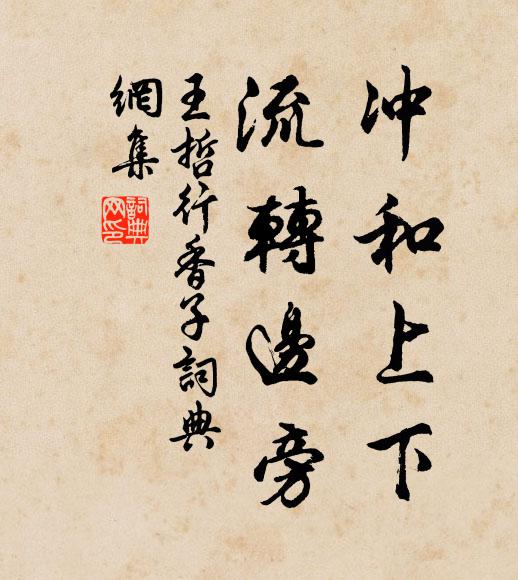 冲和上下
流轉邊旁
王哲行香子詞典
網集
詞典
网印